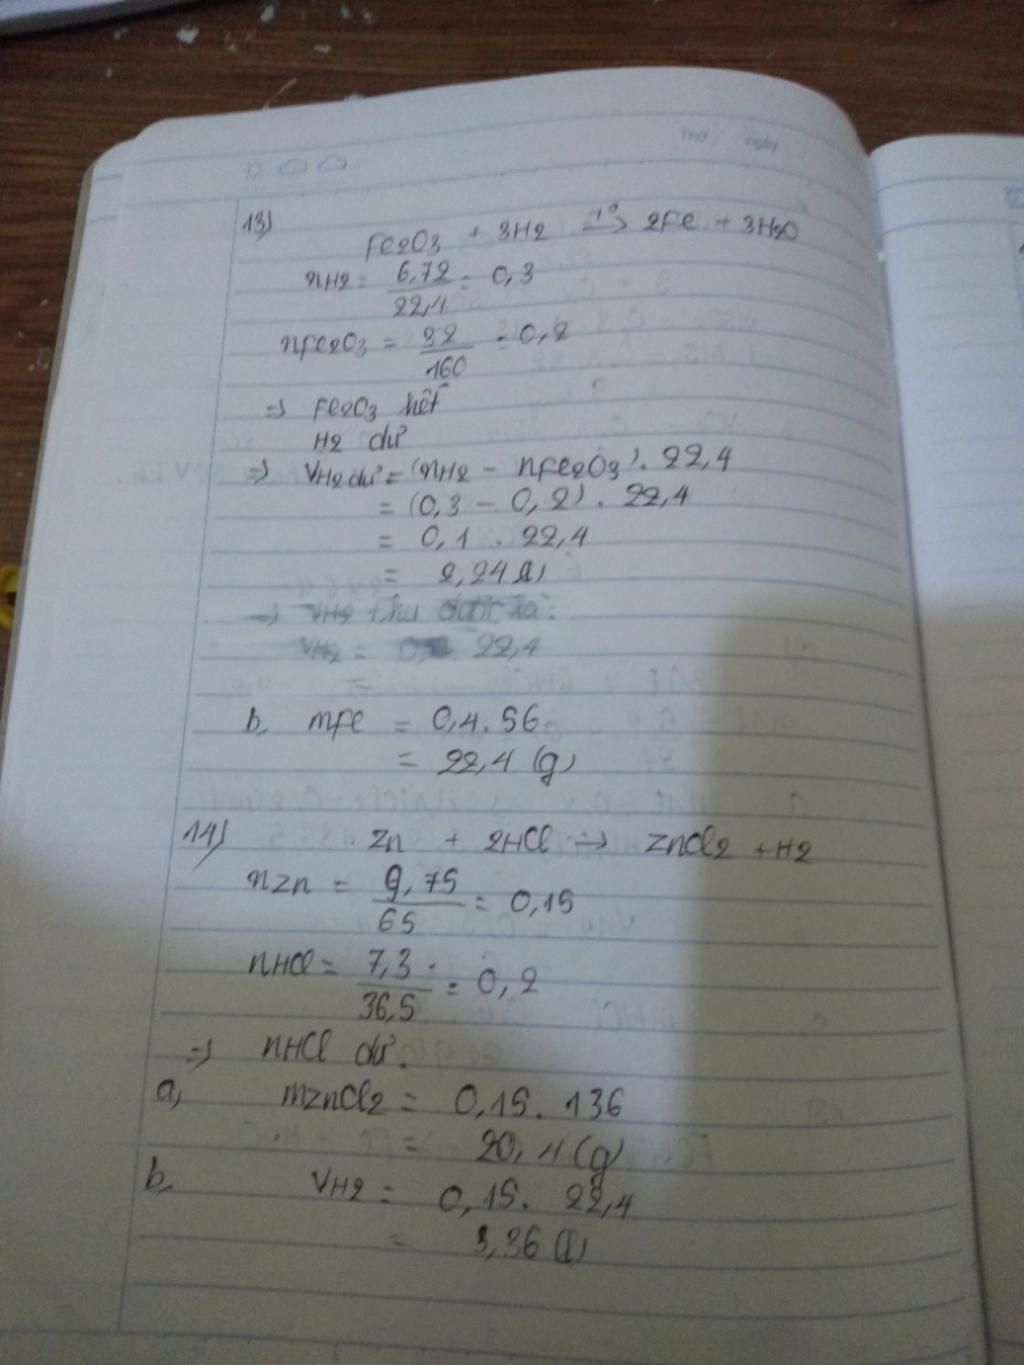 Thứ ngày
13)
Fe2O3 + 3H2 t° → 2Fe + 3H2O
nH2 = 6,72 / 22,4 = 0,3
nFe2O3 = 32 / 160 = 0,2
=> Fe2O3 hết
H2 dư
=> VH2 dư = (nH2 - nFe2O3) . 22,4
= (0,3 - 0,2) . 22,4
= 0,1 . 22,4
= 2,24 (l)
VH2 thu được là:
VH2 = 22,4
b, mFe = 0,4 . 56
= 22,4 (g)
14) Zn + 2HCl → ZnCl2 + H2
nZn = 9,75 / 65 = 0,15
nHCl = 7,3 / 36,5 = 0,2
=> nHCl dư.
a, mZnCl2 = 0,15 . 136
= 20,4 (g)
b, VH2 = 0,15 . 22,4
= 3,36 (l)